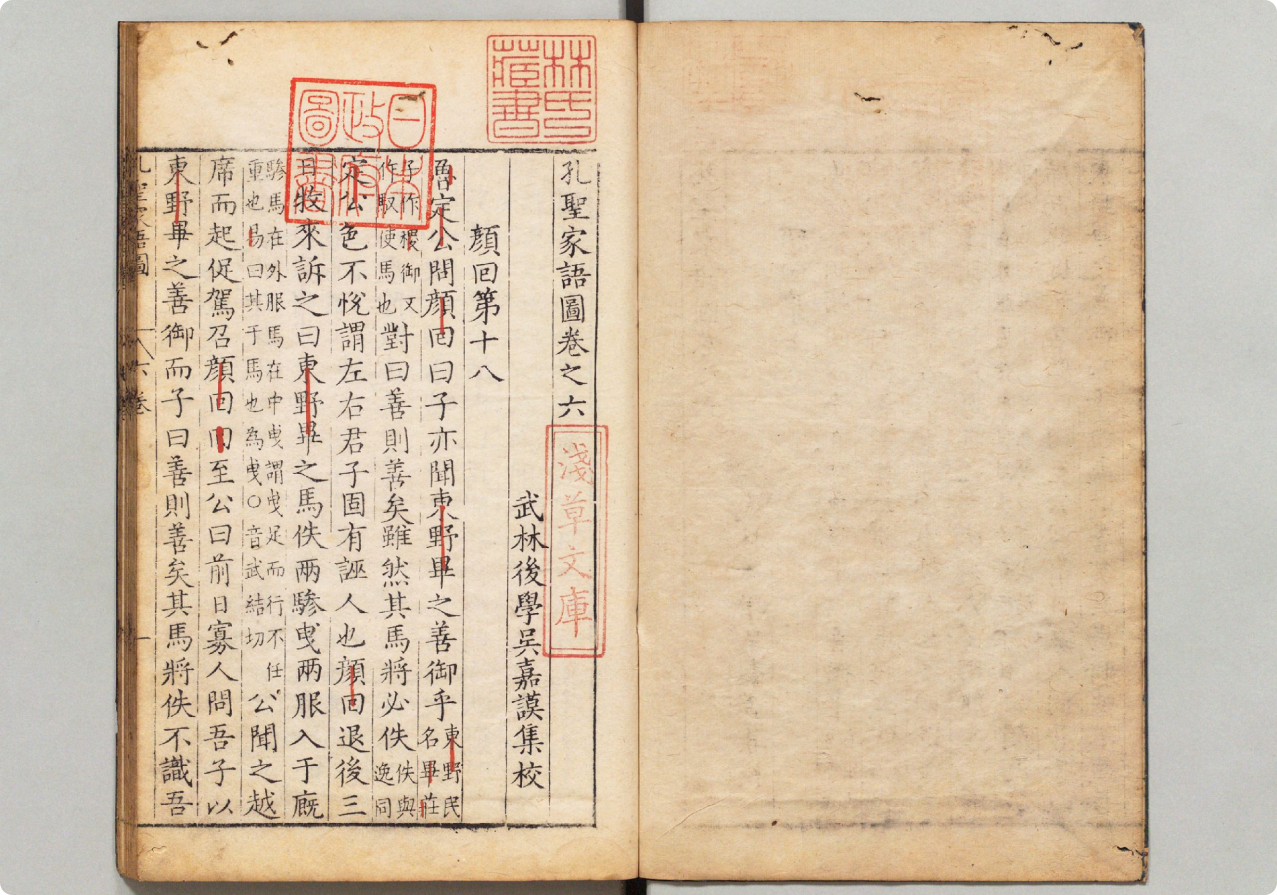 林氏藏書
日本政府圖書
孔聖家語圖卷之六
淺草文庫
武林後學吳嘉謨集校
顏回第十八
魯定公問顏回曰子亦聞東野畢之善御乎東野民名畢莊
子作稷御又作馭使馬也對曰善則善矣雖然其馬將必佚佚與逸同
定公色不悅謂左右君子固有誣人也顏回退後三
日牧來訴之曰東野畢之馬佚兩驂曳兩服入于廐
驂馬在外服馬在中曳謂曳足而行不任重也易曰其于馬也為曳○音武結切公聞之越
席而起促駕召顏回回至公曰前日寡人問吾子以
東野畢之善御而子曰善則善矣其馬將佚不識吾
孔聖家語圖 六卷 一